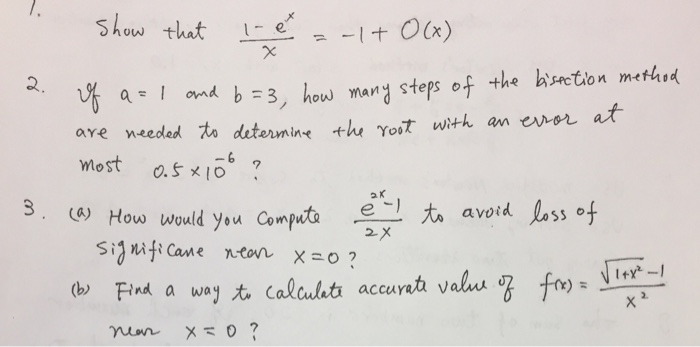 1.
Show that (1 - e^x)/x = -1 + O(x)
2. If a = 1 and b = 3, how many steps of the bisection method
are needed to determine the root with an error at
most 0.5 × 10^-6 ?
3. (a) How would you compute (e^2x - 1)/2x to avoid loss of
significane near x = 0 ?
(b) Find a way to calculate accurate value of f(x) = (√(1+x²) - 1)/x²
near x = 0 ?